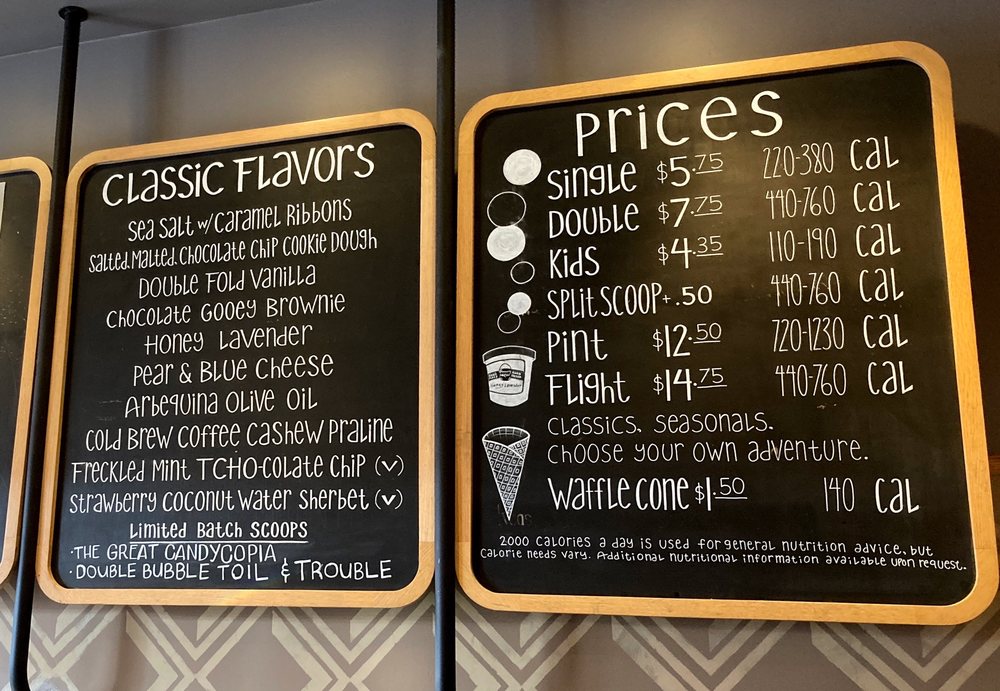 Classic Flavors
Sea Salt w/Caramel Ribbons
Salted, Malted, Chocolate Chip Cookie Dough
Double Fold Vanilla
Chocolate Gooey Brownie
Honey Lavender
Pear & Blue Cheese
Arbequina Olive Oil
Cold Brew Coffee Cashew Praline
Freckled Mint TCHO-colate Chip (v)
Strawberry Coconut Water Sherbet (v)
Limited Batch Scoops
·THE GREAT CANDYCOPIA
·DOUBLE BUBBLE TOIL & TROUBLE
Prices
Single $5.75 220-380 Cal
Double $7.75 440-760 Cal
Kids $4.35 110-190 Cal
Split Scoop +.50 440-760 Cal
Pint $12.50 720-1230 Cal
Flight $14.75 440-760 Cal
Classics. Seasonals.
Choose your own adventure.
Waffle Cone $1.50 140 Cal
2000 calories a day is used for general nutrition advice, but
calorie needs vary. Additional nutritional information available upon request.